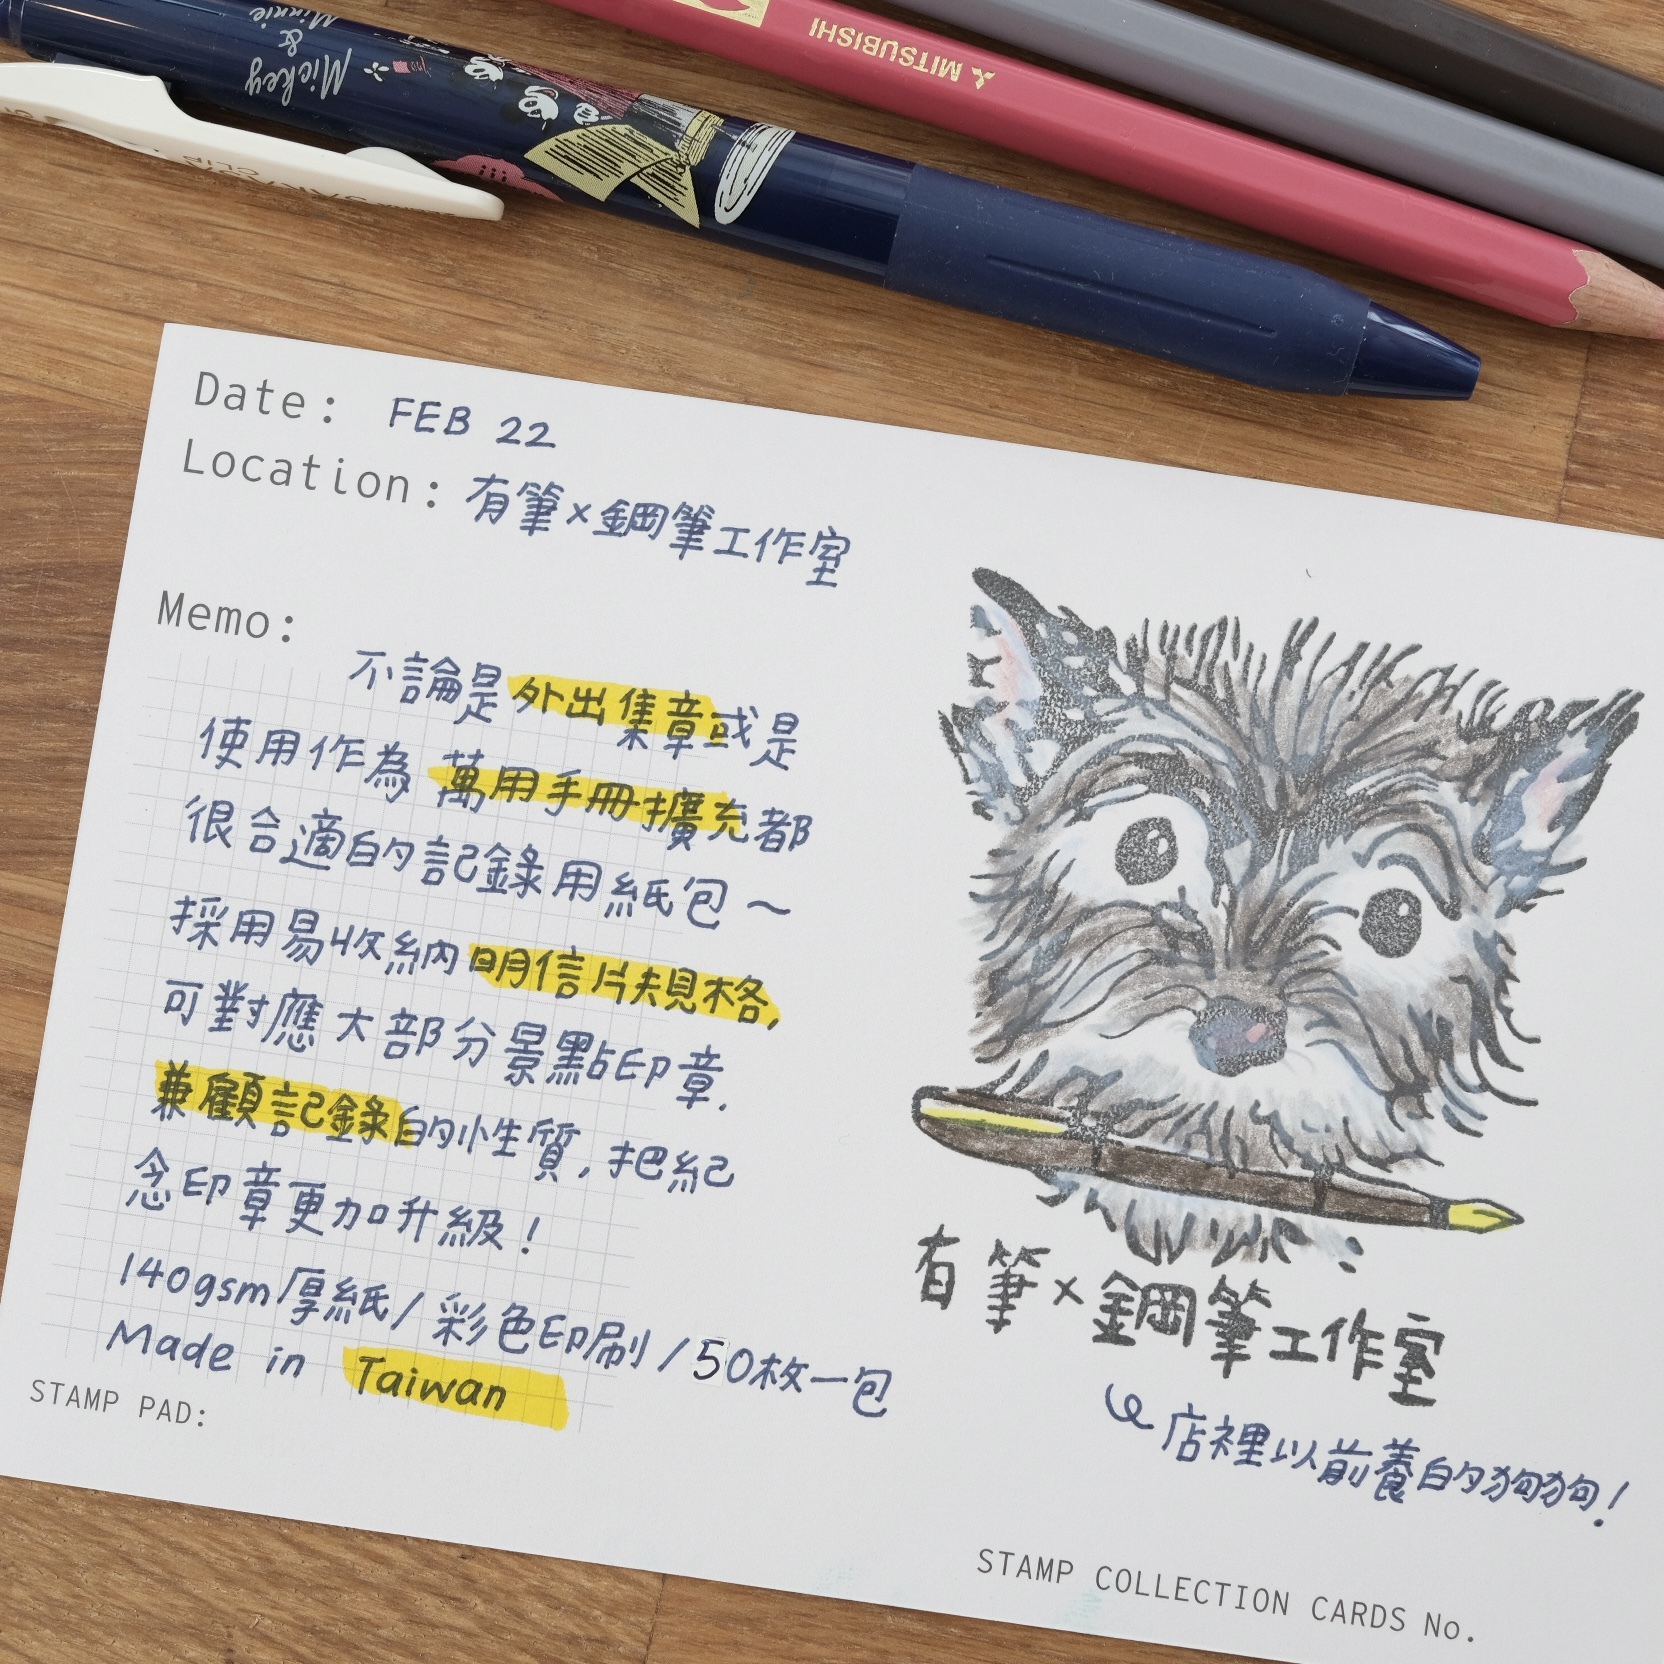 Mickey
&
Minnie
MITSUBISHI
Date: FEB 22
Location: 有筆×鋼筆工作室
Memo:
不論是外出集章或是
使用作為萬用手冊擴充都
很合適的記錄用紙包～
採用易收納明信片規格,
可對應大部分景點印章.
兼顧記錄的性質,把紀
念印章更加升級!
140gsm厚紙/彩色印刷/50枚一包
Made in Taiwan
STAMP PAD:
有筆×鋼筆工作室
店裡以前養的狗狗!
STAMP COLLECTION CARDS No.